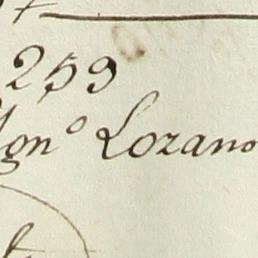 259
Ygnº Lozano